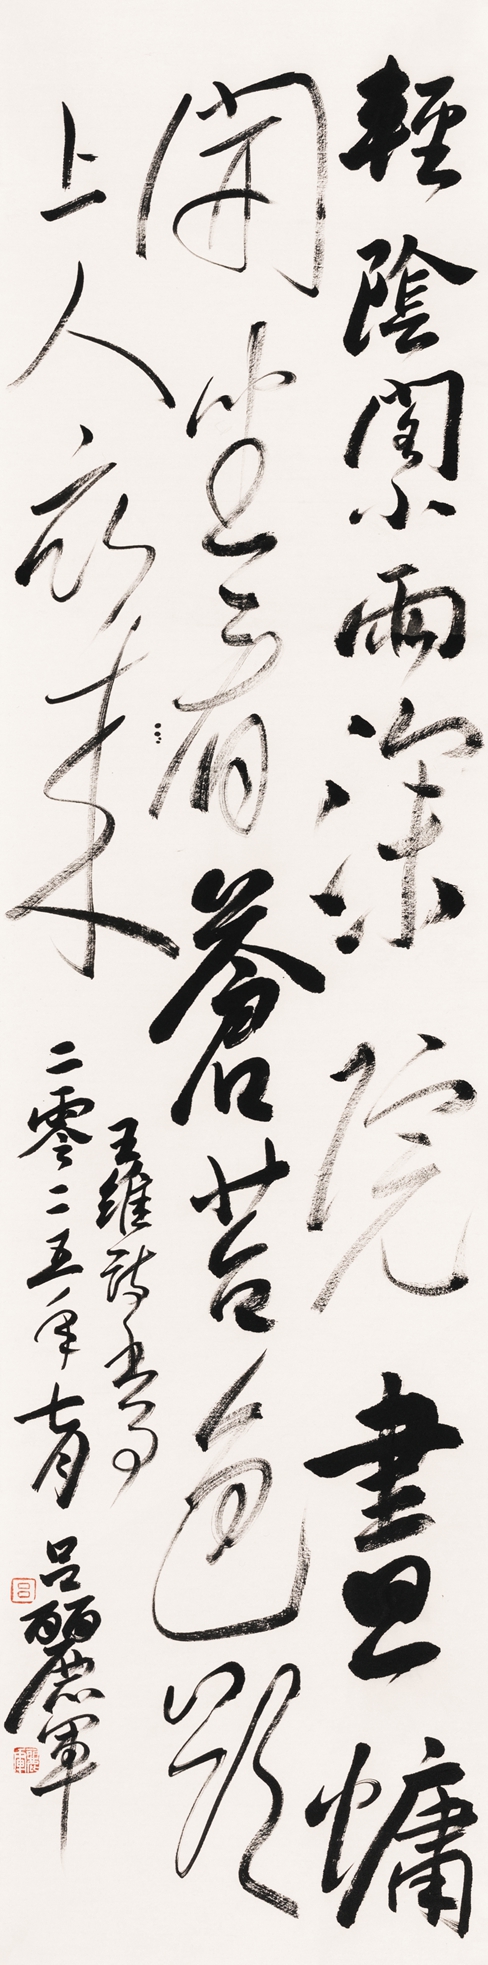 輕陰閣小雨深院晝慵
開坐看蒼苔色欲
上人衣来
王維詩書事
二零二五年七月吕麗軍
吕